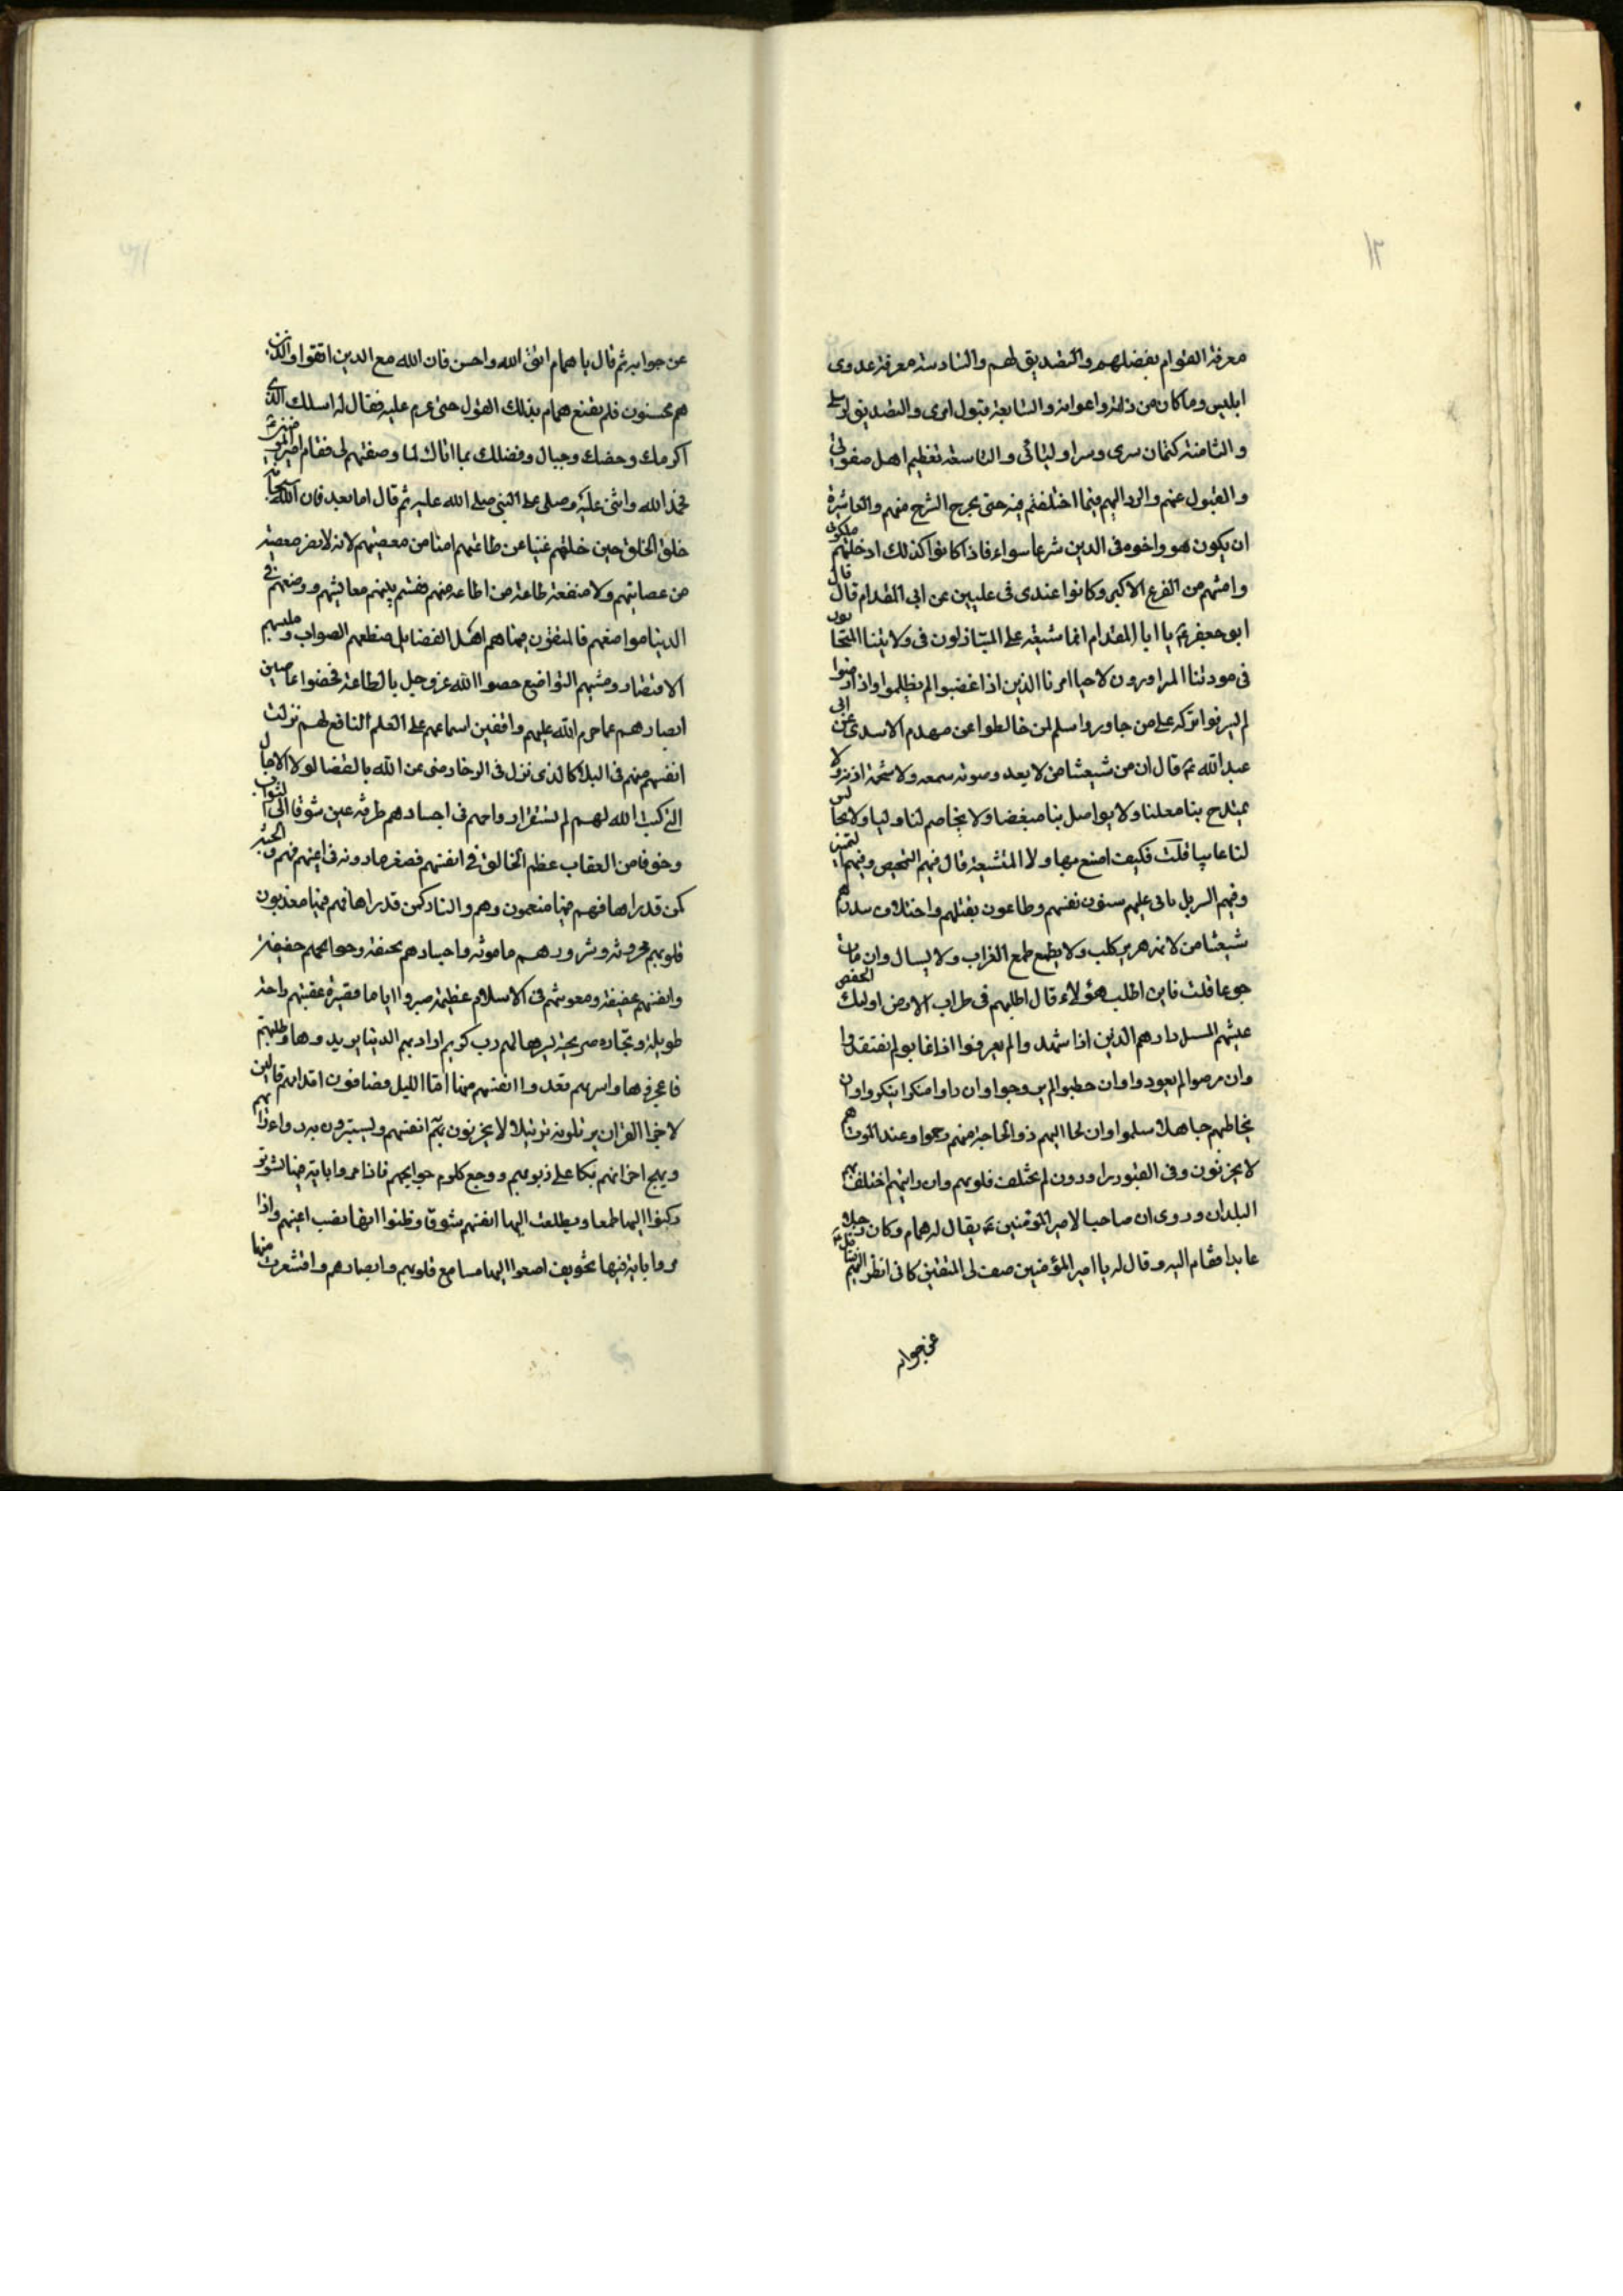 ١٣
معرفة القوام بفضلهم والتصديق لهم والسادسة معرفة عدوى
ابليس وما كان من ذاته واعوانه والسابعة قبول امرى والتصديق لرسلى
والثامنة كتمان سرى وسر اوليائى والتاسعة تعظيم اهل صفوتى
والقبول عنهم والرد اليهم فيما اختلفتم فيه حتى يخرج الشرح منهم والعاشرة
ان يكون هو واخوه فى الدين شرعا سواء فاذا كانوا كذلك ادخلتهم ملكوتى
وامنتهم من الفزع الاكبر وكانوا عندى فى عليين عن ابى المقدام قال قال
ابو جعفر ع يا ابا المقدام انما شيعة على المتباذلون فى ولايتنا المتحابون
فى مودتنا المزاورون لاحيا امرنا الذين اذا غضبوا لم يظلموا واذا رضوا
لم يسرفوا بركه على من جاوروا سلم لمن خالطوا عن مهدم الاسدى عن ابى
عبد الله ع قال ان من شيعتنا من لا يعد وصوته سمعه ولا شحمة اذنه ولا
يمتدح بنا معلنا ولا يواصل بنا مبغضا ولا يخاصم لنا وليا ولا يجالس
لنا عايبا قلت فكيف اصنع بهاولا المتشيعة قال فيهم التمحيص وفيهم التميز
وفيهم التنزيل ياتى عليهم سنون تفنيهم وطاعون يقتلهم واختلاف يبددهم
شيعتنا من لا يهر هرير كلب ولا يطمع طمع الغراب ولا يسال وان مات
جوعا قلت فاين اطلب هؤلاء قال اطلبهم فى طراف الارض اوليك الخفض
عيشهم المنتقل دارهم الذين اذا شهدوا لم يعرفوا اذا غابوا لم يفتقدوا
وان مرضوا لم يعودوا وان خطبوا لم يزوجوا وان راوا منكرا ينكروا وان
يخاطبهم جاهلا سلموا وان لجا اليهم ذو الحاجة منهم رحموا وعند الموت هم
لا يحزنون وفى القبور يزاورون لم تختلف قلوبهم وان رايتهم اختلف بهم
البلدان وروى ان صاحبا لامير المؤمنين ع يقال له همام وكان رجلا
عابدا فقام اليه وقال له يا امير المؤمنين صف لى المتقين كانى انظر اليهم فتثاقل ع
عن جوابه
عن جوابه ثم قال يا همام اتق الله واحسن فان الله مع الذين اتقوا والذين
هم محسنون فلم يقنع همام بذلك القول حتى عزم عليه فقال له اسلك الذى
اكرمك وخصك وحباك وفضلك بما اتاك لما وصفتهم لى فقام امير المؤمنين ع
فحمد الله واثنى عليه وصلى على النبى صلى الله عليه ثم قال اما بعد فان الله سبحانه
خلق الخلق حين خلقهم غنيا عن طاعتهم امنا من معصيتهم لانه لا يضره معصية
من عصاه منهم ولا منفعة طاعة من اطاعه منهم فقسم بينهم معايشهم ووضعهم فى
الدنيا مواضعهم فالمتقون فيها هم اهل الفضايل منطقهم الصواب وملبسهم
الاقتصاد ومشيهم التواضع خضعوا الله عز وجل بالطاعة فخضوا غاضين
ابصارهم عما حرم الله عليهم واقفين اسماعهم على العلم النافع لهم نزلت
انفسهم منهم فى البلا كالذى نزل فى الرخا رضى عن الله بالقضا لولا الاجال
التى كتب الله لهم لم تستقر ارواحهم فى اجسادهم طرفة عين شوقا الى الثواب
وخوفا من العقاب عظم الخالق فى انفسهم فصغر ما دونه فى اعينهم فهم والجنة
كمن قد راها فهم فيها منعمون وهم والنار كمن قد راها فهم فيها معذبون
قلوبهم محزونة وشرورهم مامونة واجسادهم نحيفة وحوائجهم خفيفة
وانفسهم عفيفة ومعونتهم فى الاسلام عظيمة صبروا اياما قصيرة عقبتهم راحة
طويلة وتجارة مربحة يسرها لهم رب كريم ارادتهم الدنيا لم يريدوها وطلبتهم
فاعجزوها واسرتهم ففدوا انفسهم منها اما الليل فصافون اقدامهم تالين
لاجزا القران يرتلونه ترتيلا لا يحزنون به انفسهم ويستثيرون به دواءدائهم
ويهيج احزانهم بكا على ذنوبهم ووجع كلوم جوايحهم فاذا مروا باية فيها تشويق
ركنوا اليها طمعا وتطلعت اليها انفسهم شوقا وظنوا انها نصب اعينهم واذا
مروا باية فيها تخويف اصغوا اليها مسامع قلوبهم وابصارهم واقشعرت منها